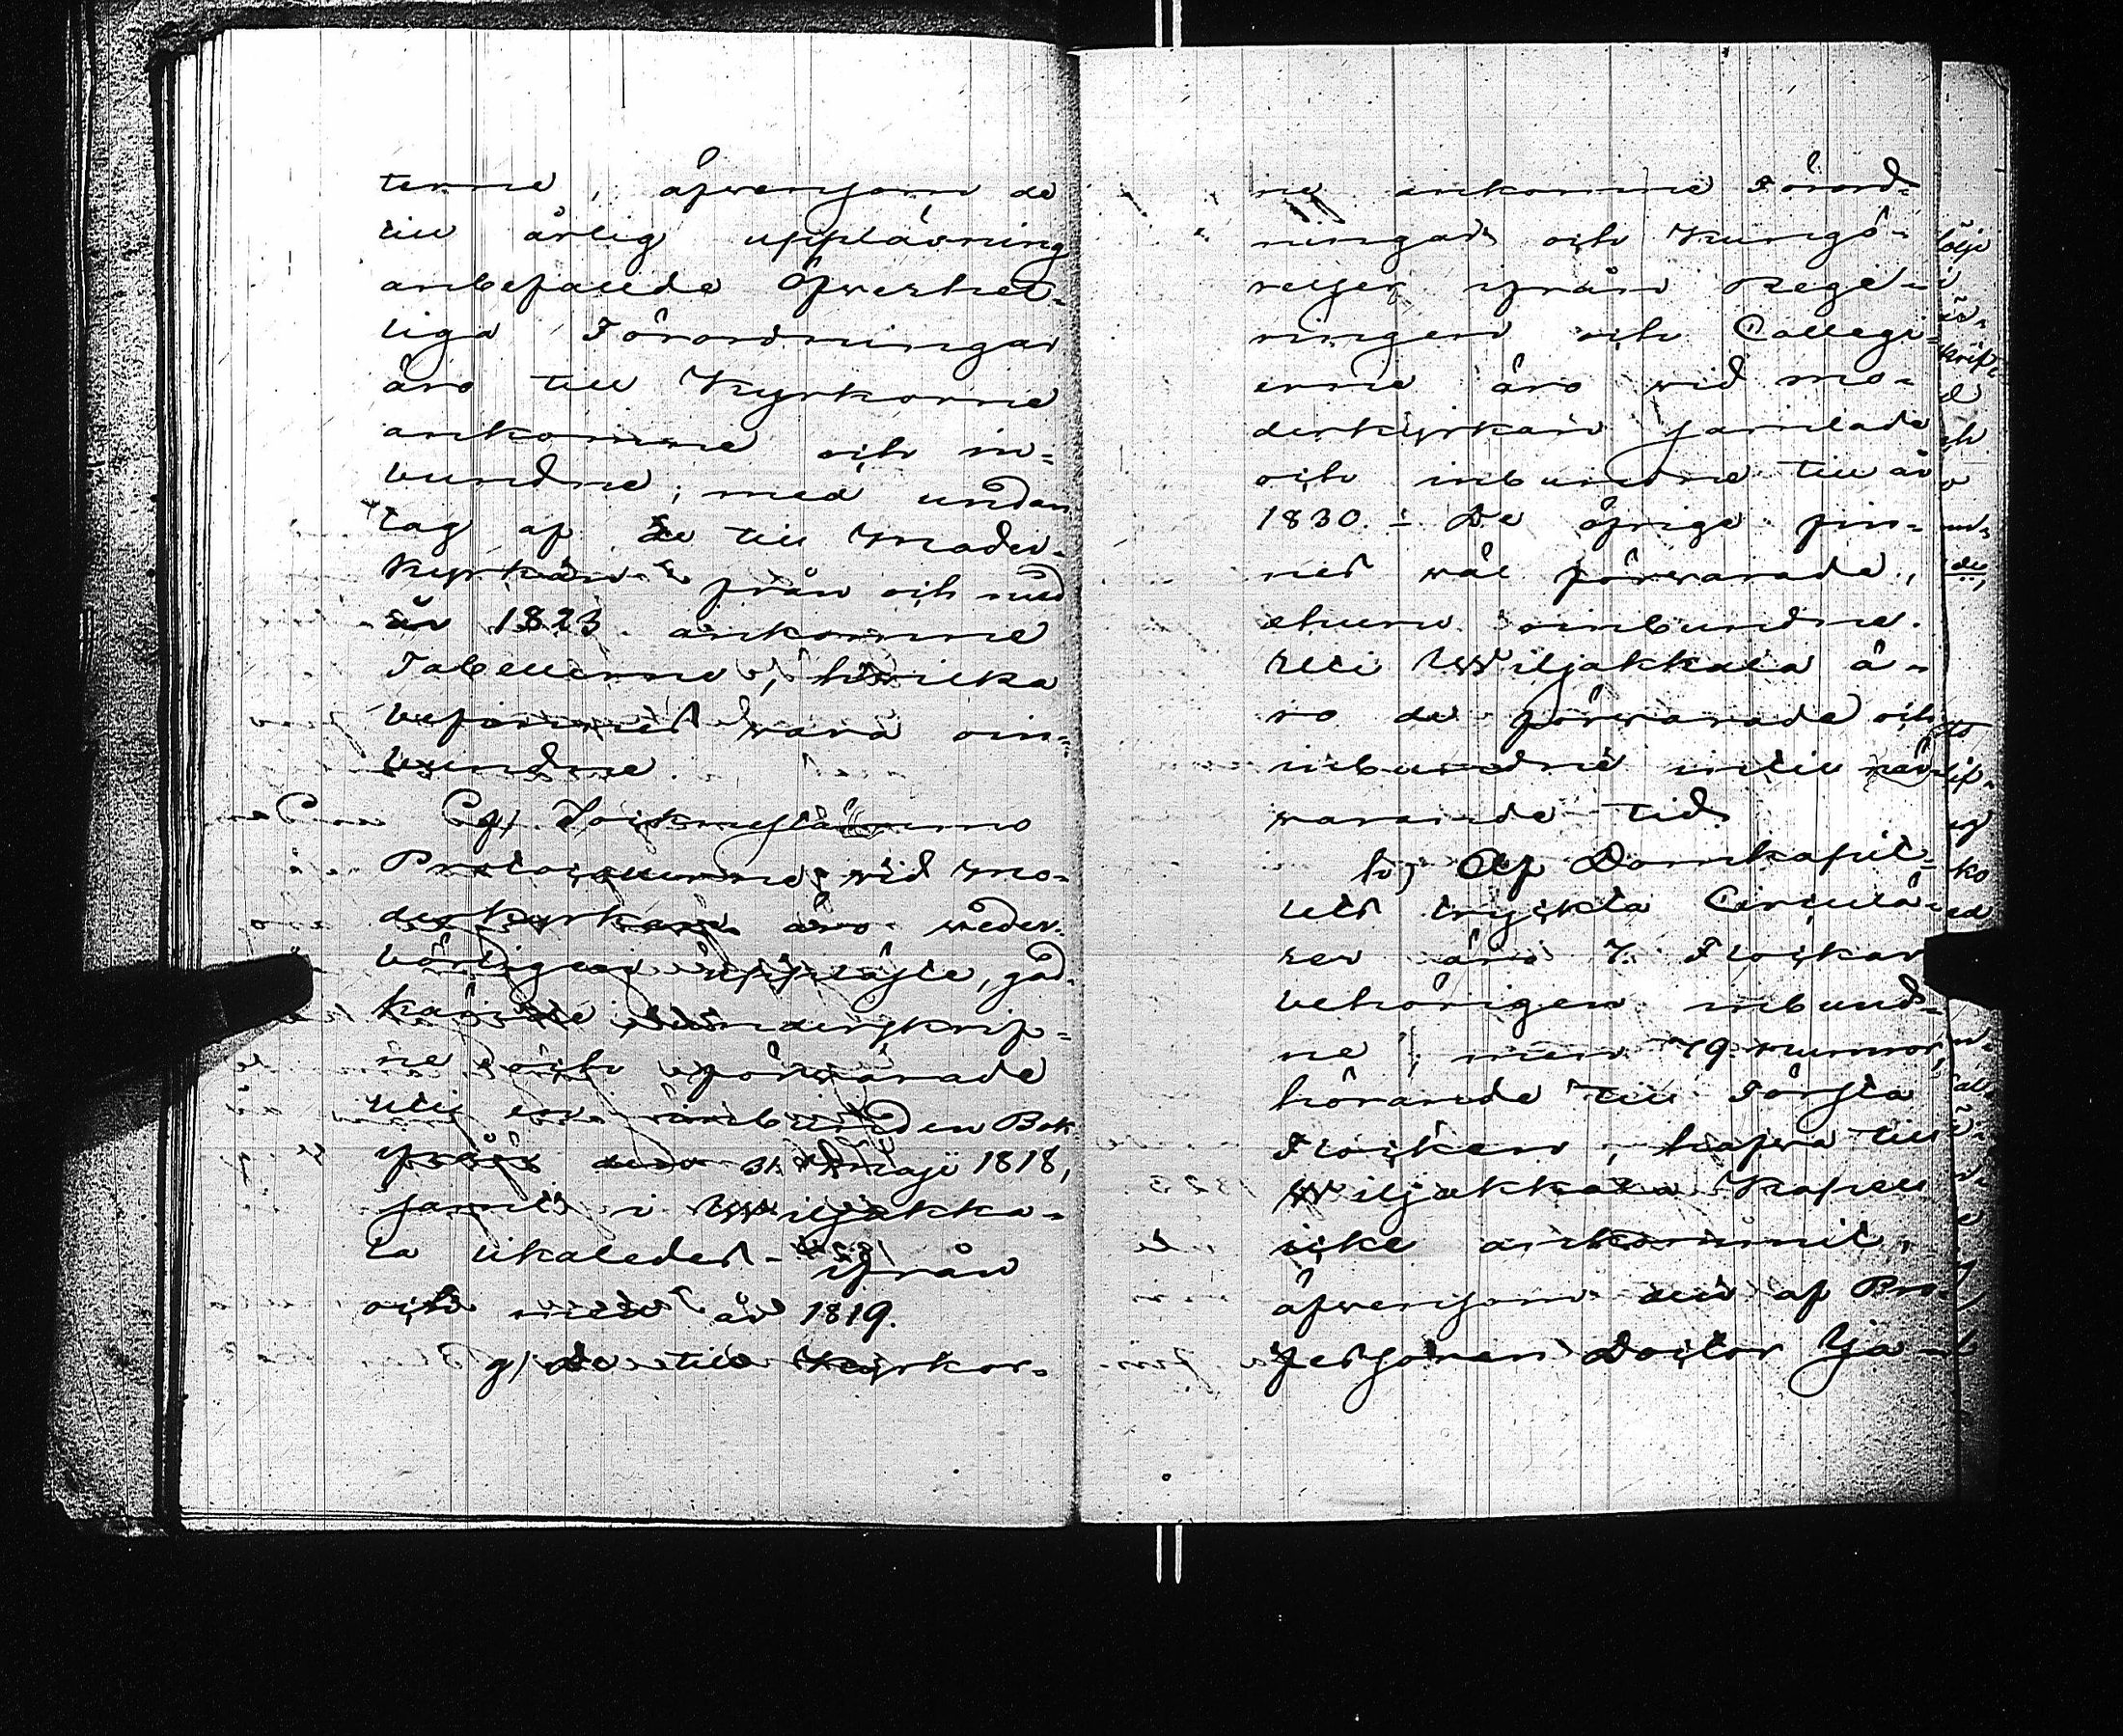 terne, äfwensom de
till årlig uppläsning
anbefallde Öfwerhet-
liga Förordningar
äro till Kyrkorne
ankomne och in-
bundne, med undan
tag af de till Moder-
Kyrkan från och med
år 1823 ankomne
Tabellerne, hwilka
befinnes wara oin-
bundne.
f) Sockne stämmo
Protocollerne wid Mo-
derkyrkan äro weder-
börligen uppläste, god-
kände, underskrif-
ne och förwarade
uti en inbunden Bok
ifrån den 31 Maji 1818,
samt i Wiljakka-
la likaledes ifrån
och med år 1819.
g) De till Kyrkor-
ne ankomne Förord-
ningar och Kungö-
relser ifrån Rege-
ringen och Collegi-
erne äro wid Mo-
derkyrkan samlade
och inbundne till år
1830. De öfrige fin-
nes wäl förwarade,
ehuru oinbundne.
Uti Wiljakkala ä-
ro de förwarade och
inbundne intill när-
warande tid.
h) Af Domkapit-
lets tryckta Circulä-
rer äro 7. Flockar
behörigen inbund-
ne, men 79 nummor,
hörande till Första
Flocken, hafwa till
Wiljakkala Kapell
icke ankommit,
äfwensom den af Pro-
fessoren Doctor Ja-